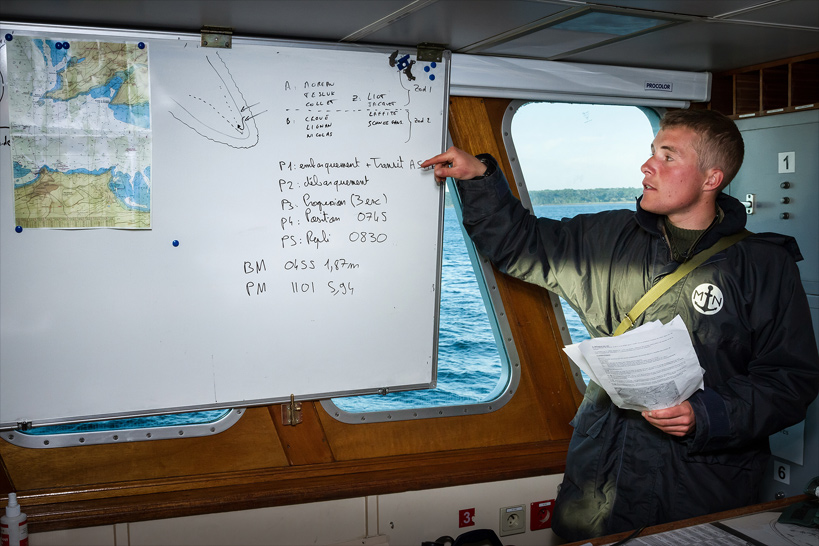 PROCOLOR
A: MOREAU
TESLUE
COLLET
2: LIOT
JACQUET
LAFFITE
Zod 1
B: CRAVÉ
LIGNAN
NICOLAS
Zod 2
P1: embarquement + Transit AS
P2: débarquement
P3: Progression (3 exc)
P4: Position 0745
P5: Repli 0830
BM 0455 1,87m
PM 1101 5,94
M N
1
6
3